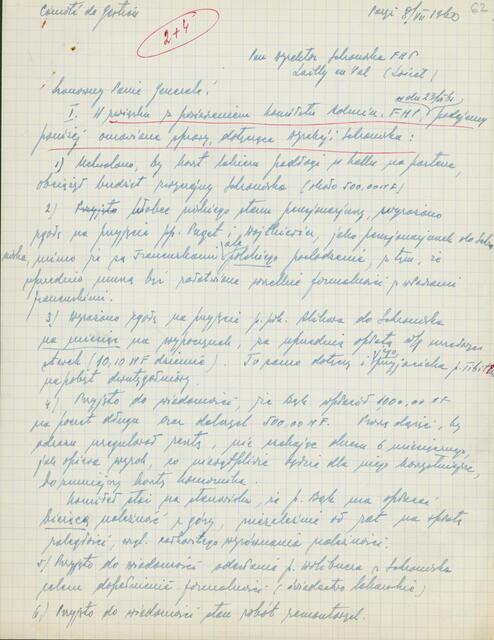 Comité de Gestion
Paryż 8/VII 1960
62
2+4
Pan Dyrektor Schroniska FHP
Lailly en Val (Loiret)
Szanowny Panie Generale!
I. W związku z posiedzeniem Komitetu Admin. FHP, podajemy
w dn 23/VI br.
poniżej omawiane sprawy, dotyczące Dyrekcji Schroniska:
1) Uchwalono, by koszt lakieru podłogi w hallu na parterze,
obciążył budżet zwyczajny Schroniska (około 500,00 NF)
2) Przyjęto Wobec niskiego stanu pensjonariuszy, wyrażono
zgodę na przyjęcie pp. Puget i Wojtkiewicz, jako pensjonariuszek do Schro
niska, mimo że są Francuskami ale polskiego pochodzenia, z tym, że
uprzednio muszą być załatwione wszelkie formalności z władzami
francuskimi.
3) Wyrażono zgodę na przyjęcie p. płk. do Schroniska
na miesiąc na wypoczynek, za uprzednią opłatą wg
stawek (10,10 NF dziennie). To samo dotyczy i przyjaciela p.
na pobyt dwutygodniowy.
4) Przyjęto do wiadomości, że p. Bąk wpłacił 1000,00 NF
na poczet długu oraz dalszych 500,00 NF. Proszę dążyć, by
odrazu uregulował resztę, nie czekając okresu 6 miesięcznego,
jak opiewa wyrok, co niewątpliwie będzie dla niego korzystniejsze,
bo zmniejszy koszta komornika.
Komitet stoi na stanowisku, że p. Bąk ma opłacać
bieżącą należność z góry, niezależnie od rat na spłatę
zaległości, wzgl. całkowitego wyrównania należności.
5) Przyjęto do wiadomości odesłanie p. z Schroniska
celem dopełnienia formalności (świadectwo lekarskie)
6) Przyjęto do wiadomości stan robót remontowych.